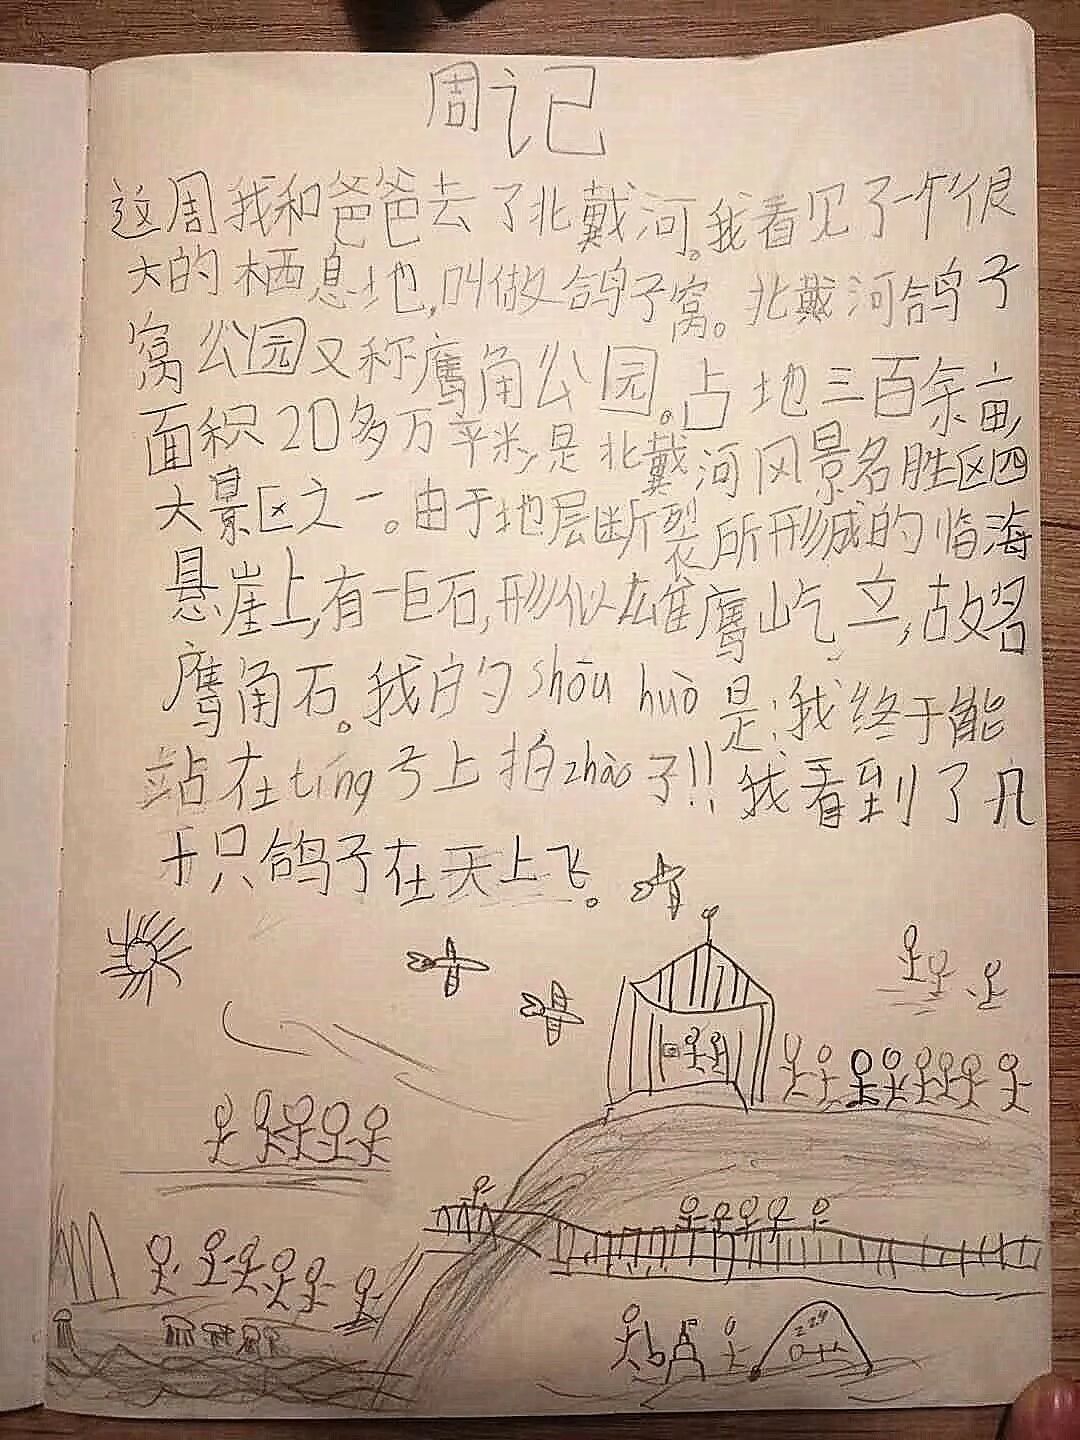 周记
这周我和爸爸去了北戴河。我看见了一个很
大的栖息地,叫做鸽子窝。北戴河鸽子
窝公园又称鹰角公园。占地三百余亩,
面积20多万平米,是北戴河风景名胜区四
大景区之一。由于地层断裂所形成的临海
悬崖上,有一巨石,形似雄鹰屹立,故名
鹰角石。我的shōu huò是:我终于能
站在tíng子上拍zhào了!!我看到了几
千只鸽子在天上飞。